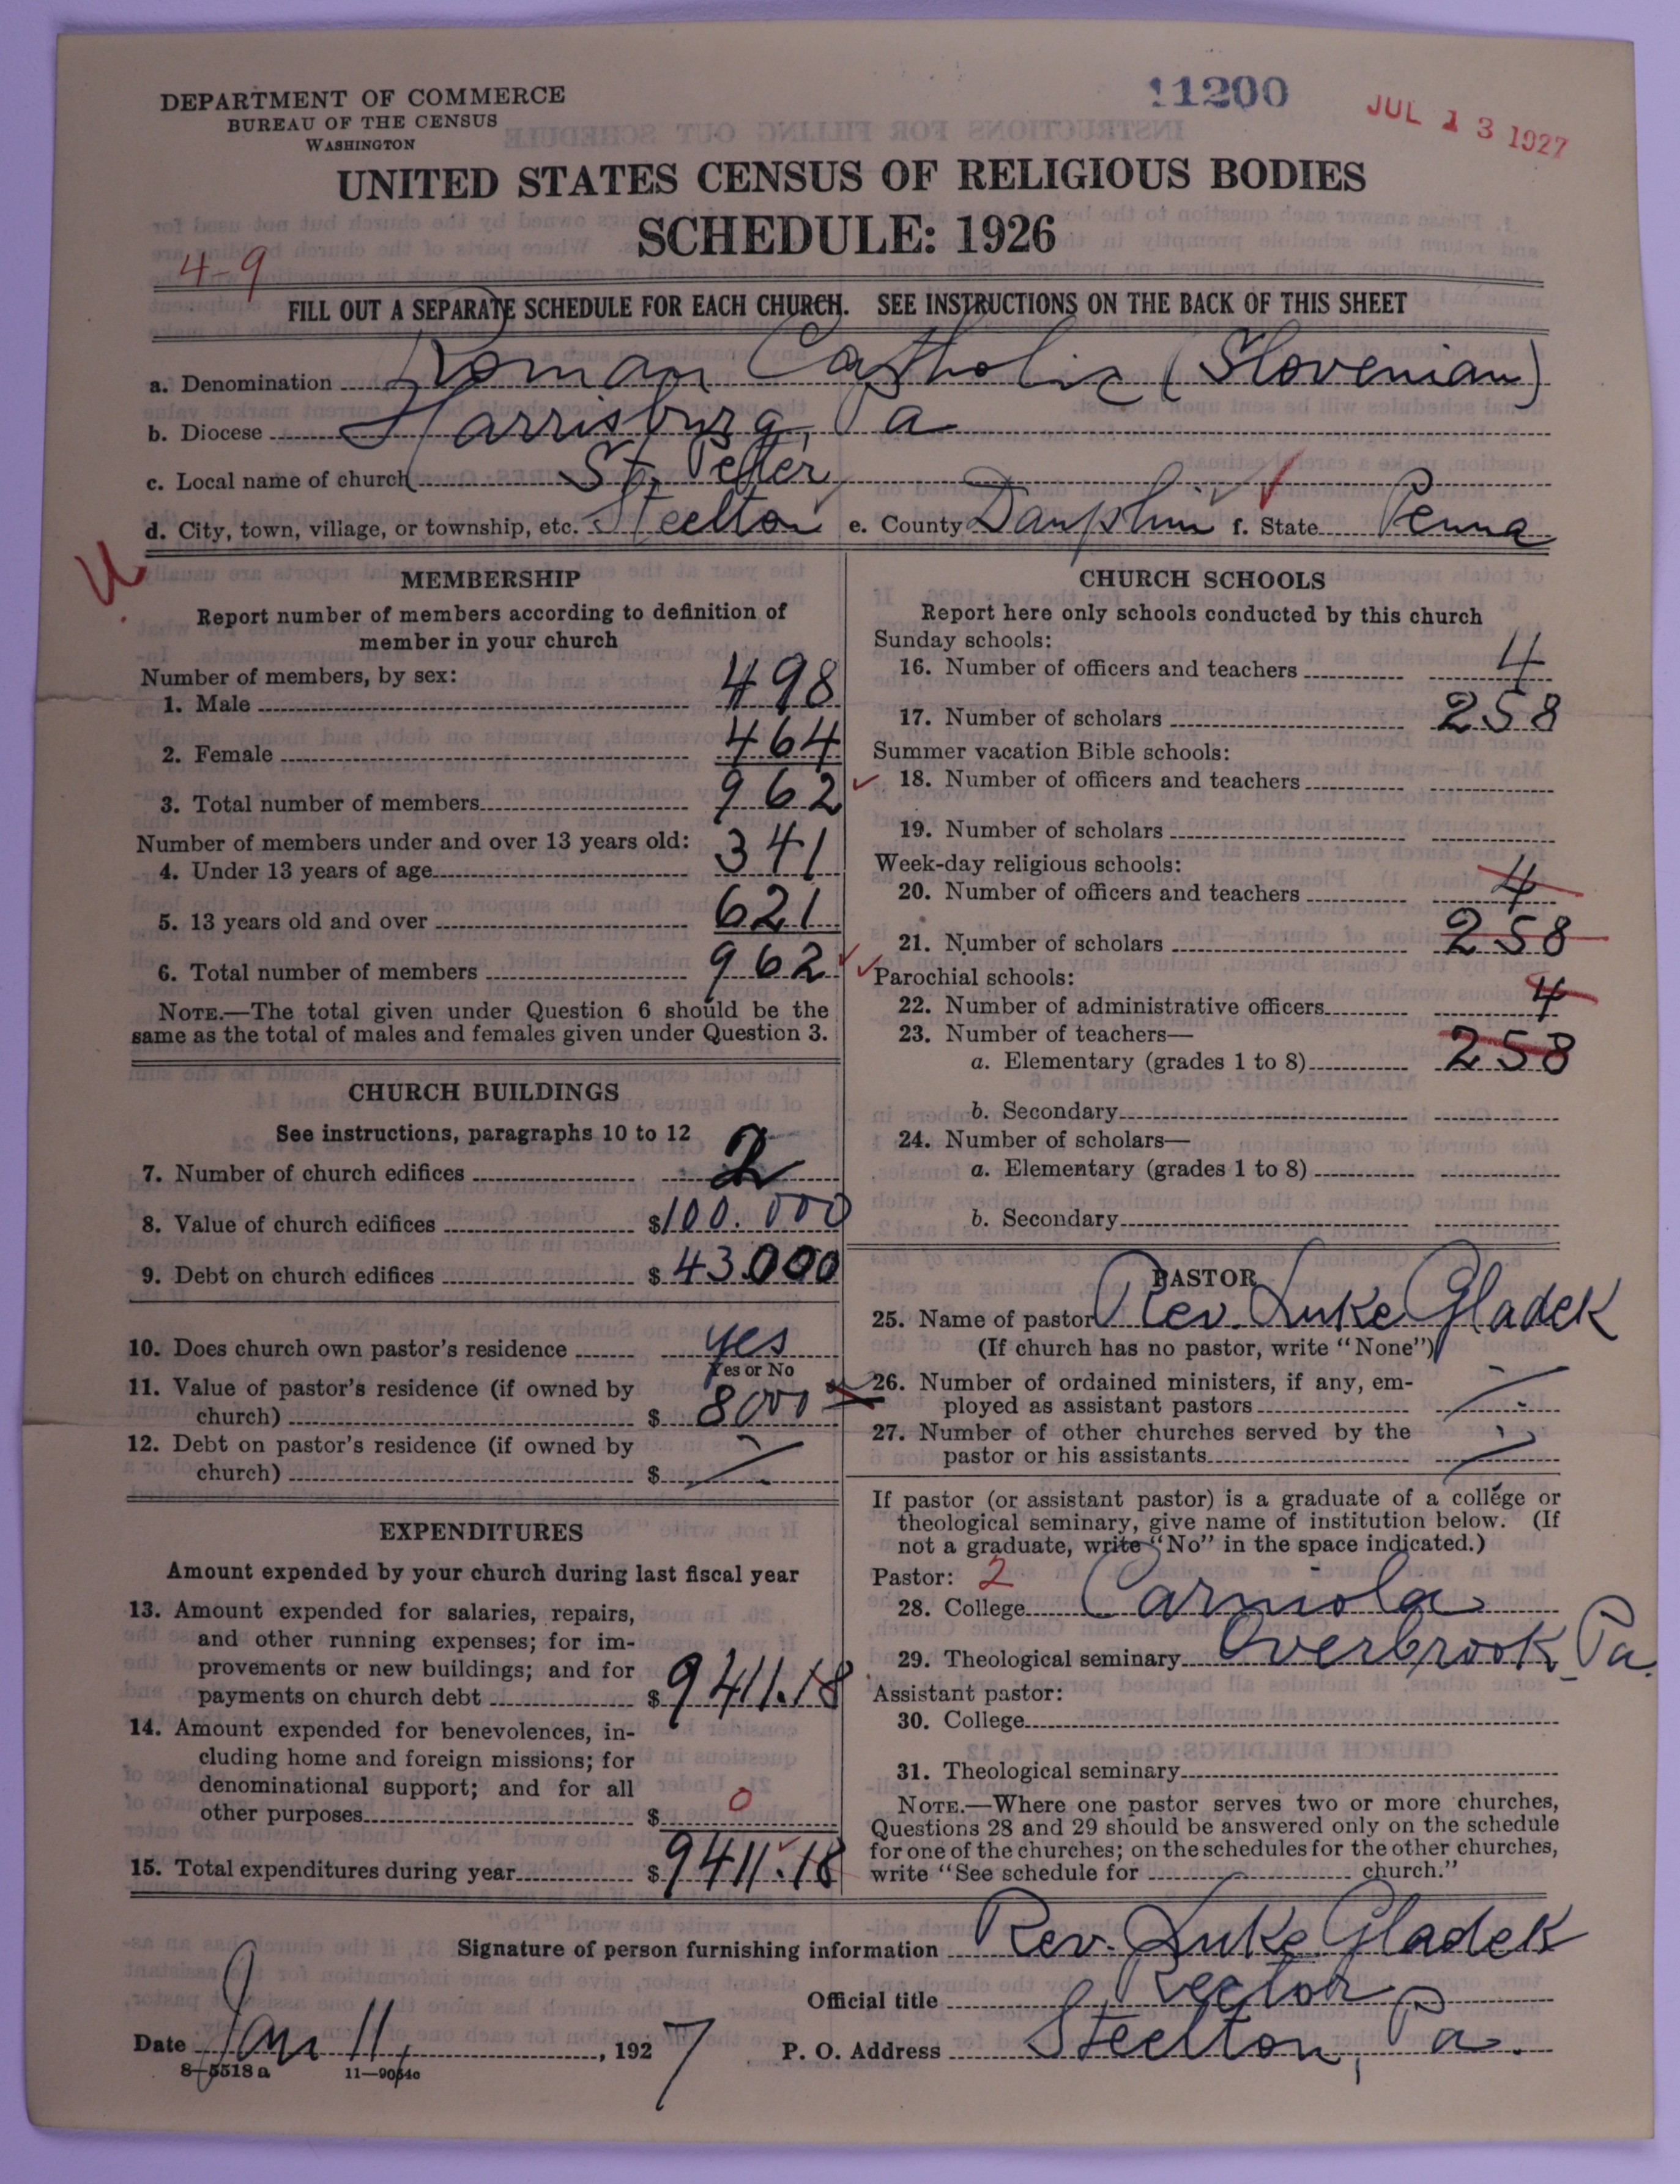 DEPARTMENT OF COMMERCE
BUREAU OF THE CENSUS
WASHINGTON
11200
JUL 13 1927
UNITED STATES CENSUS OF RELIGIOUS BODIES
SCHEDULE: 1926
4-9
FILL OUT A SEPARATE SCHEDULE FOR EACH CHURCH. SEE INSTRUCTIONS ON THE BACK OF THIS SHEET
a. Denomination Roman Catholic (Slovenian)
b. Diocese Harrisburg, Pa
c. Local name of church St. Peter
d. City, town, village, or township, etc. Steelton e. County Dauphin f. State Penna
MEMBERSHIP
Report number of members according to definition of
member in your church
Number of members, by sex:
1. Male 498
2. Female 464
3. Total number of members 962
Number of members under and over 13 years old:
4. Under 13 years of age 341
5. 13 years old and over 621
6. Total number of members 962
NOTE.—The total given under Question 6 should be the
same as the total of males and females given under Question 3.
CHURCH BUILDINGS
See instructions, paragraphs 10 to 12
7. Number of church edifices 2
8. Value of church edifices $100.000
9. Debt on church edifices $43000
10. Does church own pastor's residence yes
Yes or No
11. Value of pastor's residence (if owned by
church) $ 8000
12. Debt on pastor's residence (if owned by
church) $
EXPENDITURES
Amount expended by your church during last fiscal year
13. Amount expended for salaries, repairs,
and other running expenses; for im-
provements or new buildings; and for
payments on church debt $9411.18
14. Amount expended for benevolences, in-
cluding home and foreign missions; for
denominational support; and for all
other purposes $ 0
15. Total expenditures during year $9411.18
CHURCH SCHOOLS
Report here only schools conducted by this church
Sunday schools:
16. Number of officers and teachers 4
17. Number of scholars 258
Summer vacation Bible schools:
18. Number of officers and teachers
19. Number of scholars
Week-day religious schools:
20. Number of officers and teachers 4
21. Number of scholars 258
Parochial schools:
22. Number of administrative officers 4
23. Number of teachers—
a. Elementary (grades 1 to 8) 258
b. Secondary
24. Number of scholars—
a. Elementary (grades 1 to 8)
b. Secondary
PASTOR
25. Name of pastor Rev. Luke Gladek
(If church has no pastor, write "None")
26. Number of ordained ministers, if any, em-
ployed as assistant pastors
27. Number of other churches served by the
pastor or his assistants
If pastor (or assistant pastor) is a graduate of a college or
theological seminary, give name of institution below. (If
not a graduate, write "No" in the space indicated.)
Pastor: 2
28. College Carniola
29. Theological seminary Overbrook, Pa.
Assistant pastor:
30. College
31. Theological seminary
NOTE.—Where one pastor serves two or more churches,
Questions 28 and 29 should be answered only on the schedule
for one of the churches; on the schedules for the other churches,
write "See schedule for church."
Signature of person furnishing information Rev. Luke Gladek
Official title Rector
Date Jan 11, 1927 P. O. Address Steelton, Pa.
8-5518 a 11—9054c